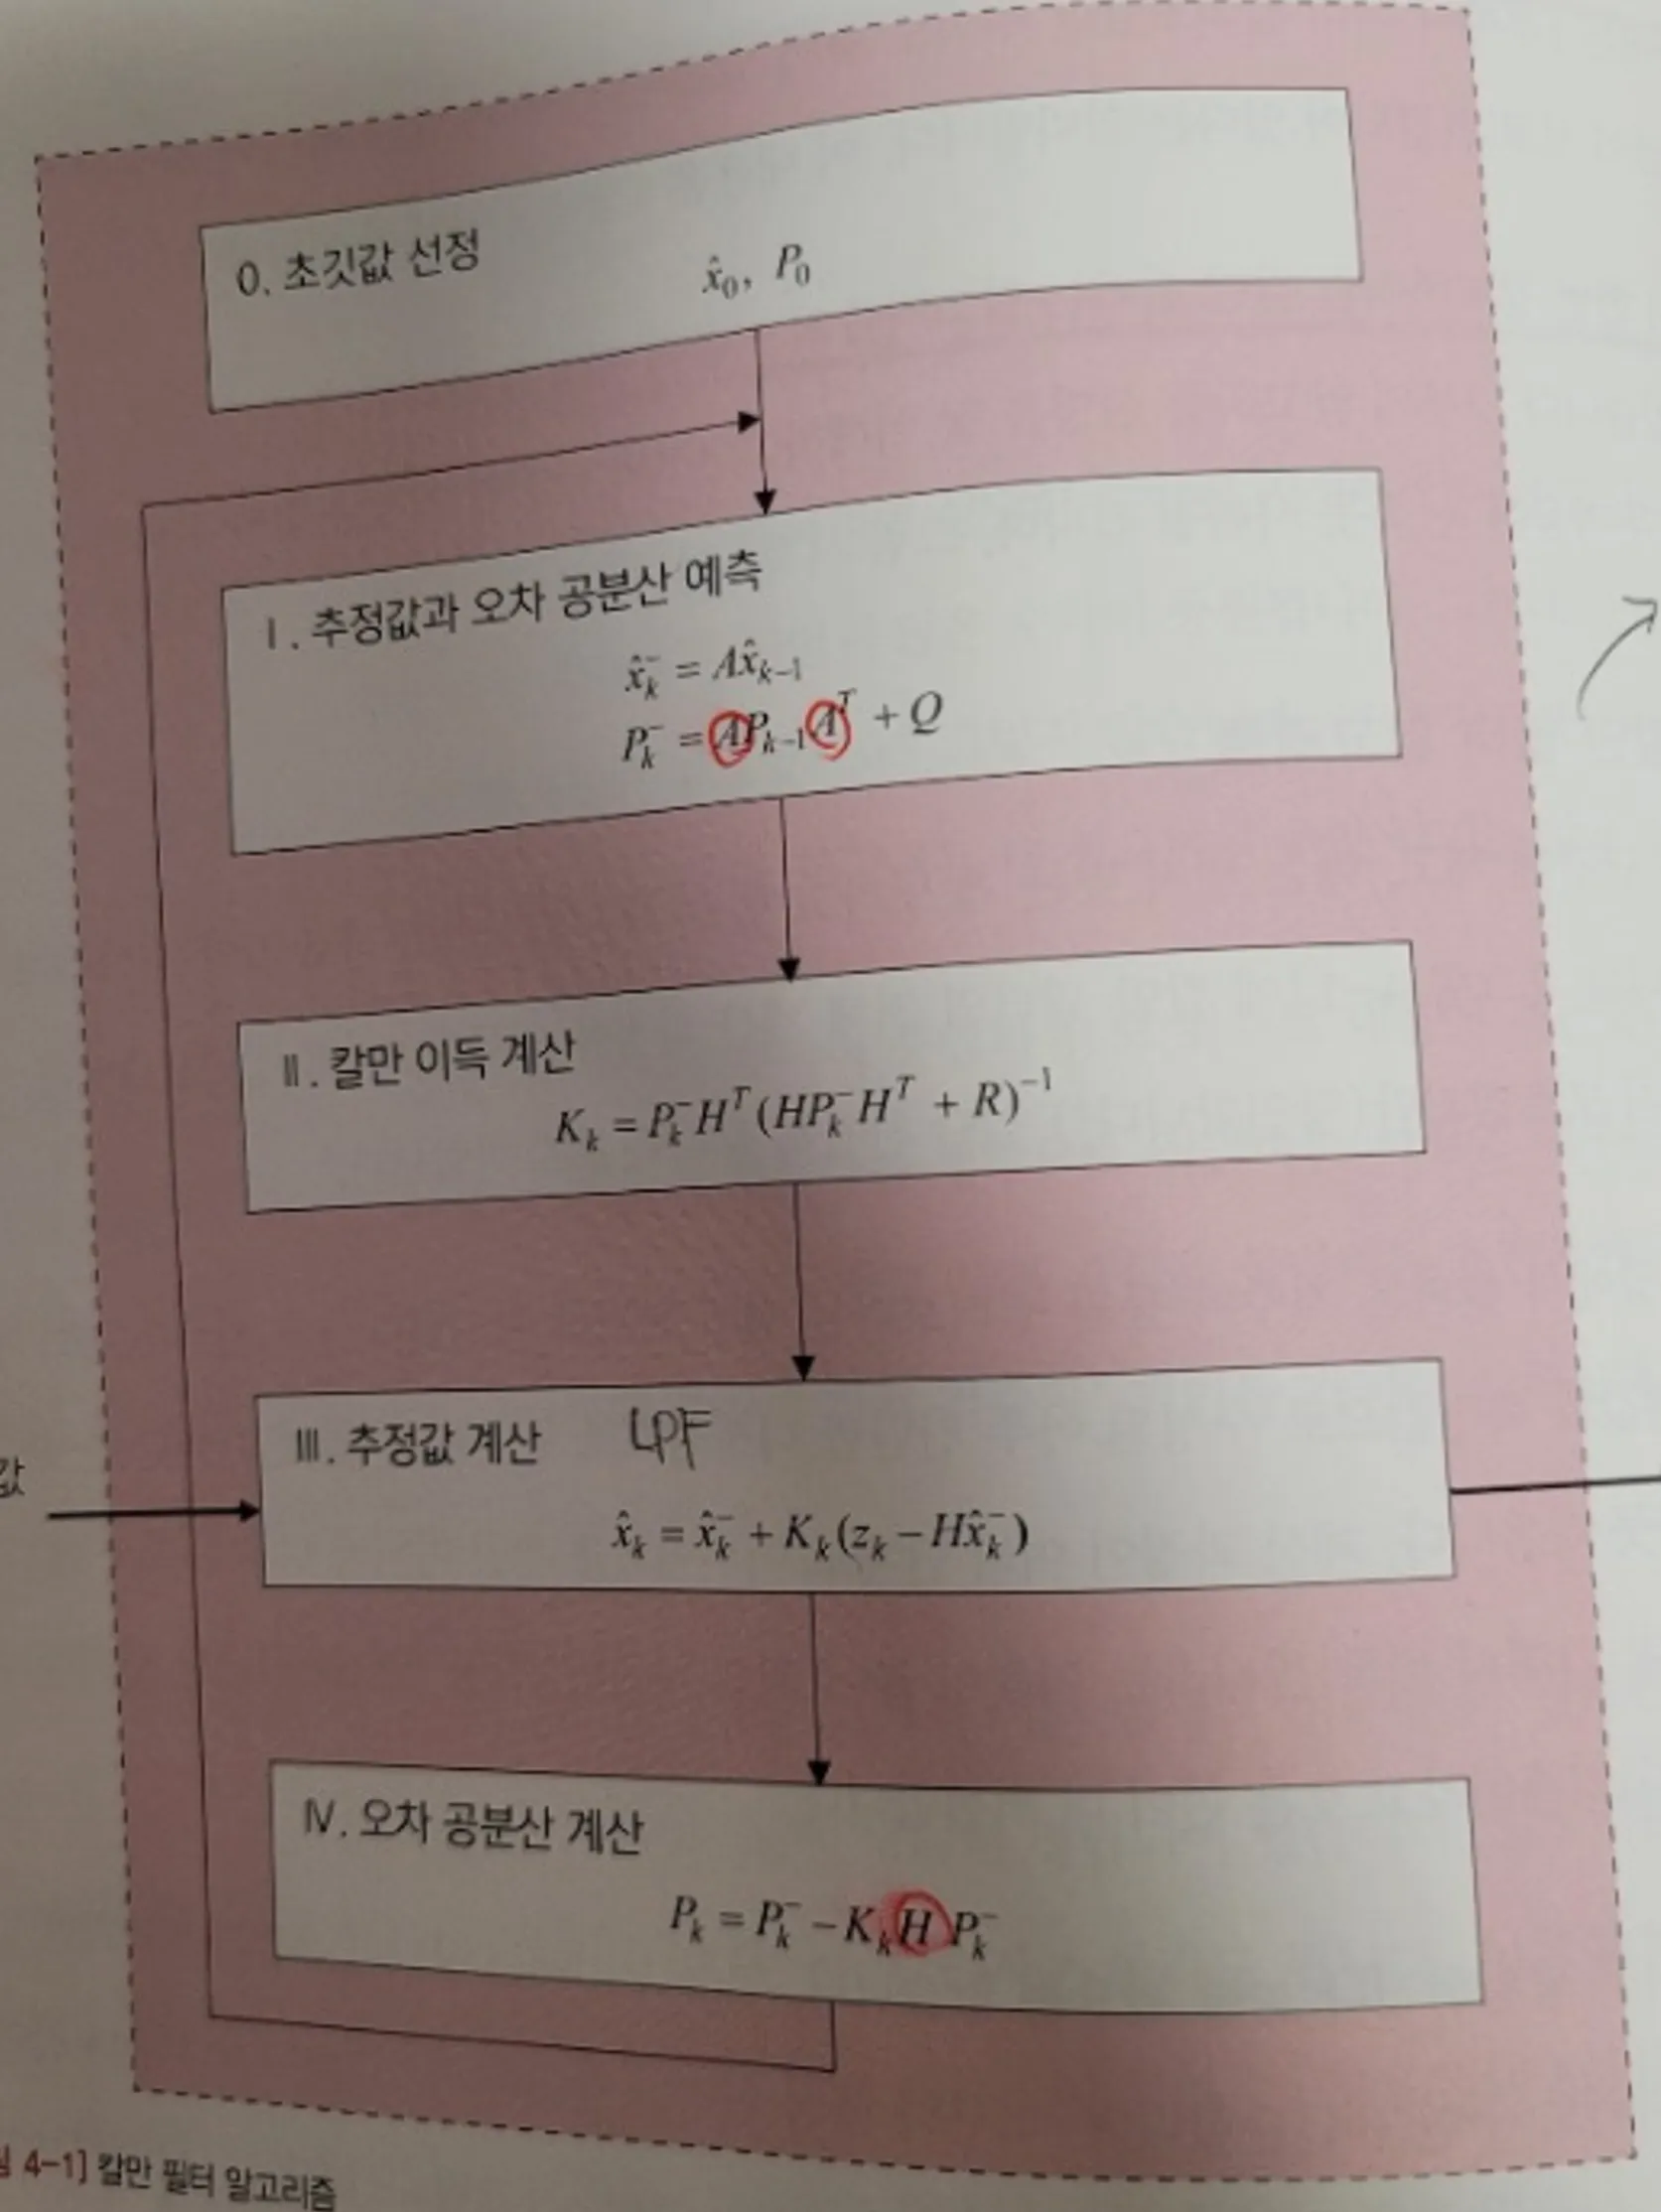 0. 초깃값 선정
x̂₀, P₀
Ⅰ. 추정값과 오차 공분산 예측
x̂ₖ⁻ = Ax̂ₖ₋₁
Pₖ⁻ = APₖ₋₁Aᵀ + Q
Ⅱ. 칼만 이득 계산
Kₖ = Pₖ⁻Hᵀ(HPₖ⁻Hᵀ + R)⁻¹
Ⅲ. 추정값 계산 LPF
값
x̂ₖ = x̂ₖ⁻ + Kₖ(zₖ − Hx̂ₖ⁻)
Ⅳ. 오차 공분산 계산
Pₖ = Pₖ⁻ − KₖHPₖ⁻
4-1] 칼만 필터 알고리즘